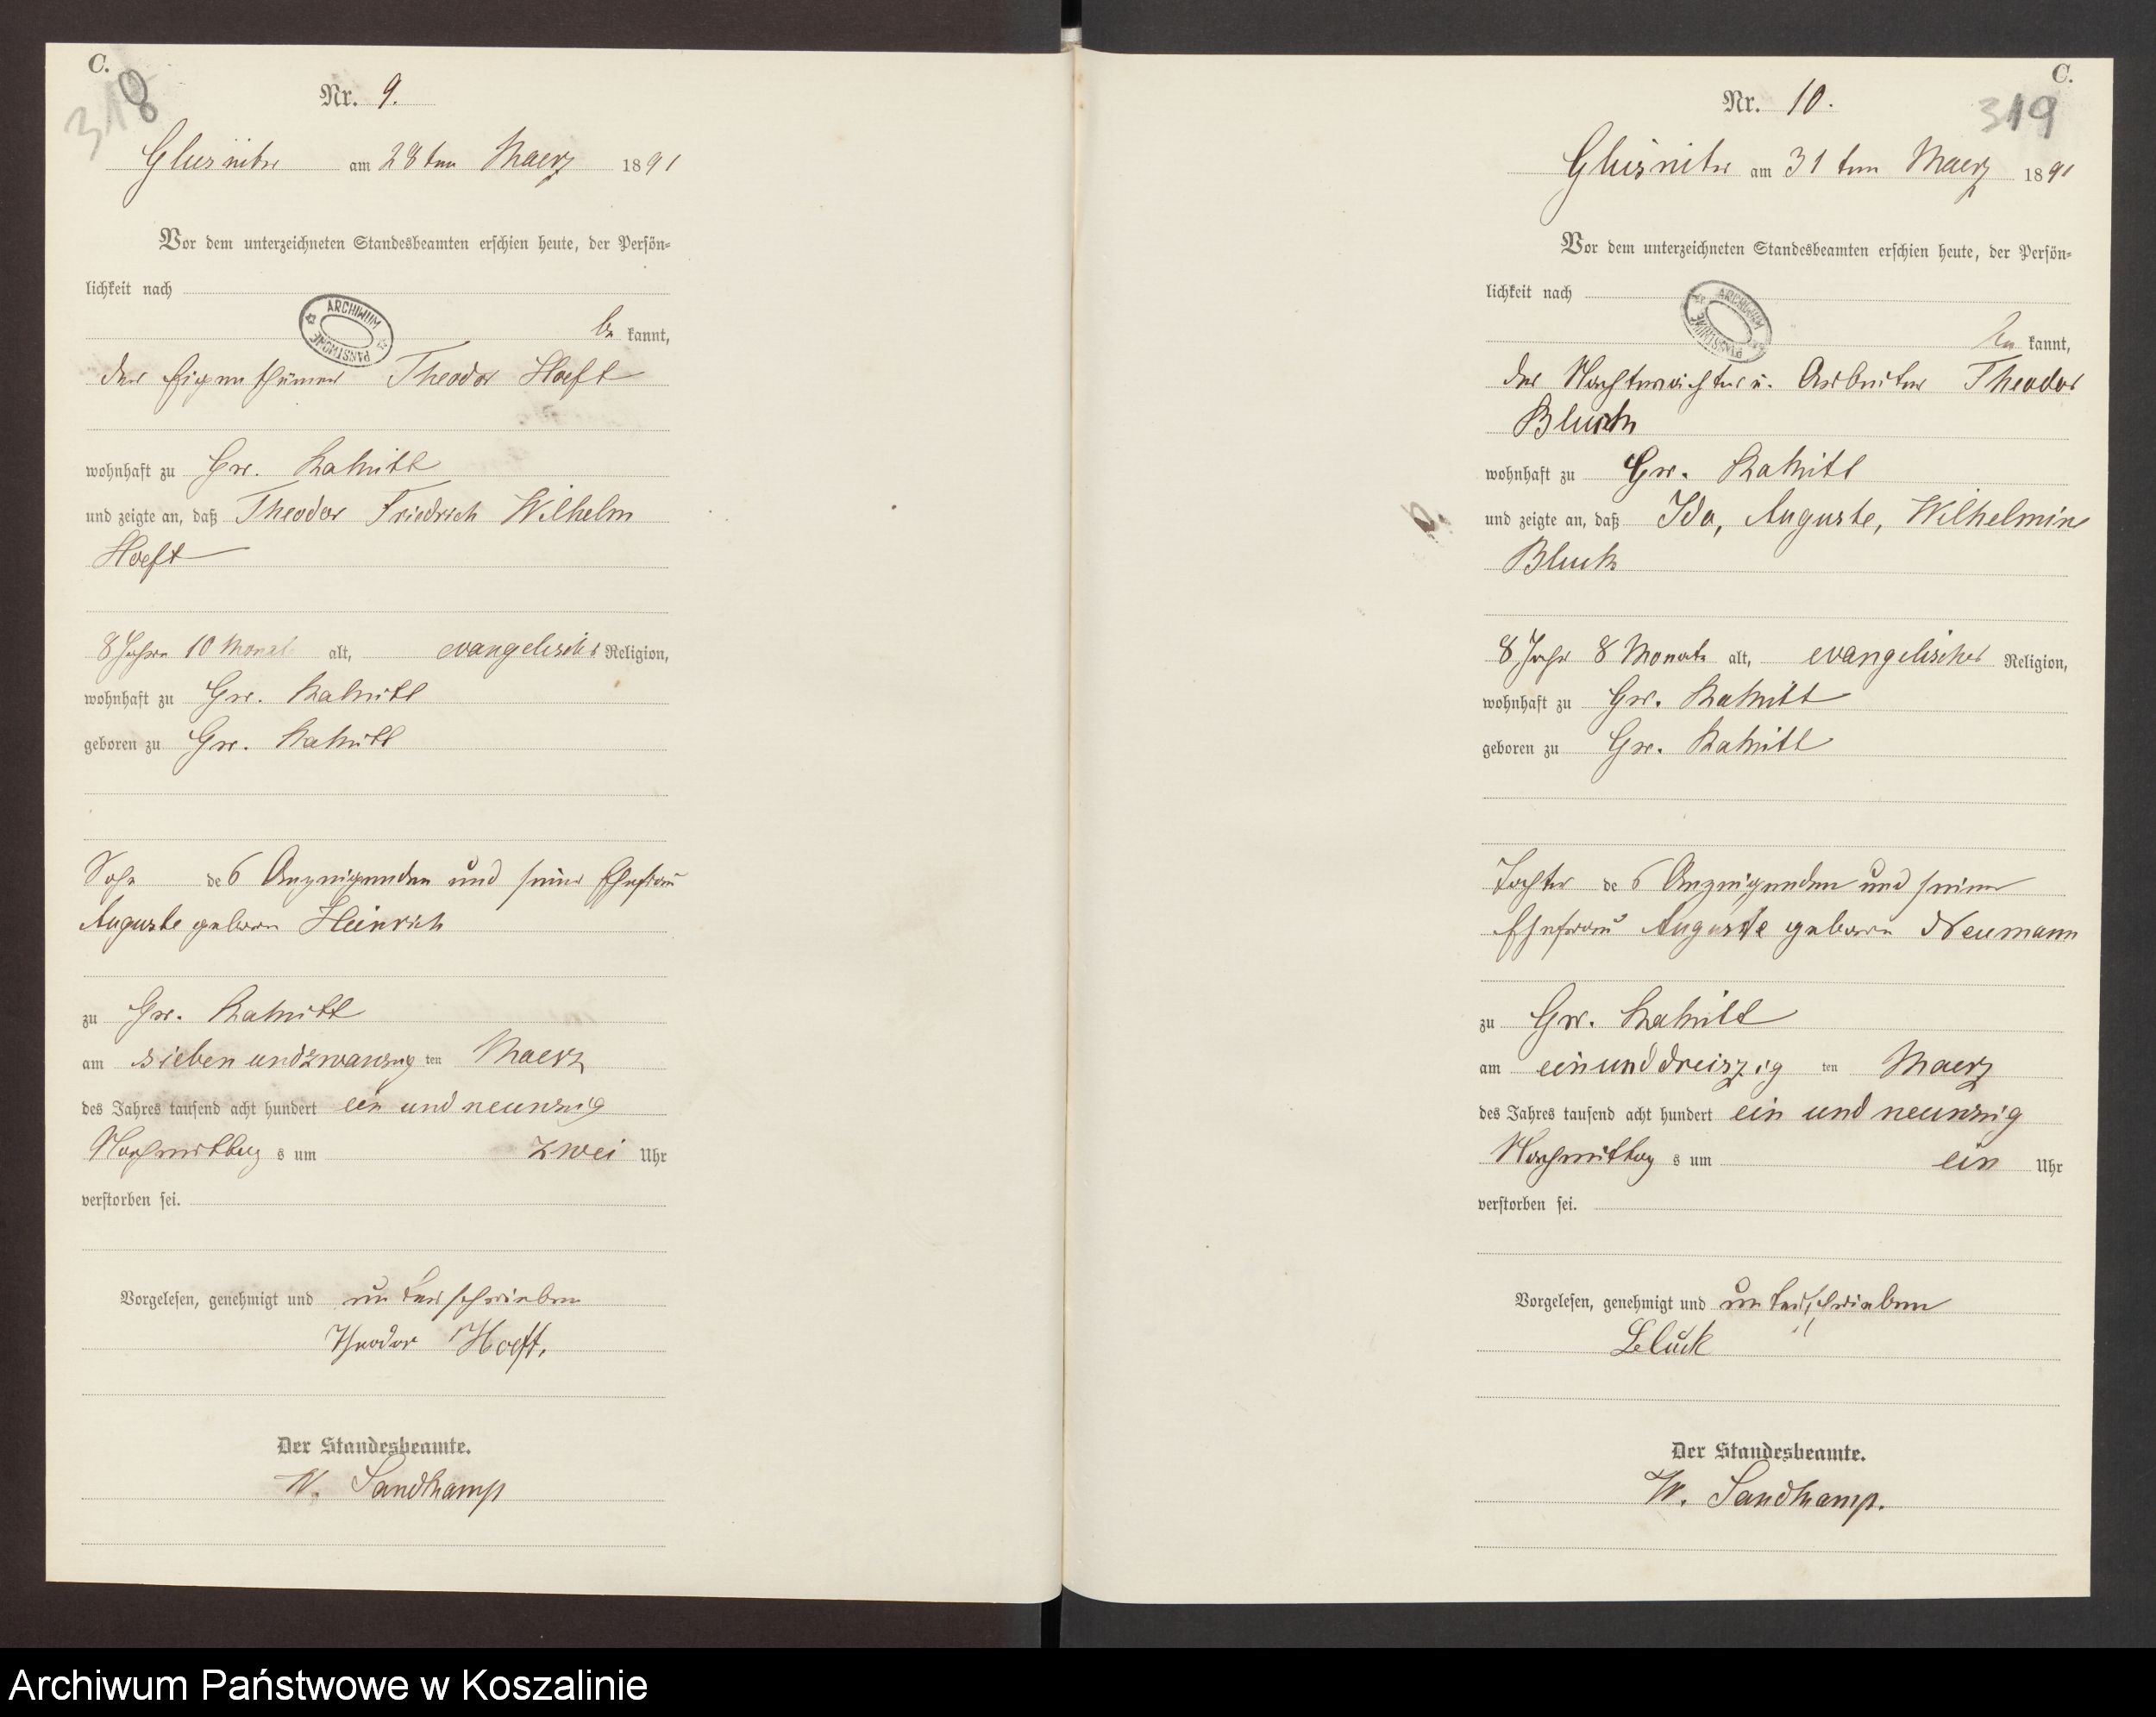 C.
318
Nr. 9.
Glusnitz am 28ten Maerz 1891
Vor dem unterzeichneten Standesbeamten erschien heute, der Persön-
lichkeit nach
be kannt,
der Eigenthümer Theodor Hoeft
wohnhaft zu Gr. Rakitt
und zeigte an, daß Theodor Friedrich Wilhelm
Hoeft
8 Jahre 10 Monat alt, evangelischer Religion,
wohnhaft zu Gr. Rakitt
geboren zu Gr. Rakitt
Sohn des Anzeigenden und seiner Ehefrau
Auguste geboren Heinrich
zu Gr. Rakitt
am sieben undzwanzig ten Maerz
des Jahres tausend acht hundert ein und neunzig
Nachmittag s um zwei Uhr
verstorben sei.
Vorgelesen, genehmigt und unterschrieben
Theodor Hoeft.
Der Standesbeamte.
W. Sandkamp
ARCHIWUM PAŃSTWOWE
C.
319
Nr. 10.
Glusnitz am 31ten Maerz 1891
Vor dem unterzeichneten Standesbeamten erschien heute, der Persön-
lichkeit nach
be kannt,
der Nachtwächter u. Arbeiter Theodor
Bluck
wohnhaft zu Gr. Rakitt
und zeigte an, daß Ida, Auguste, Wilhelmine
Bluck
8 Jahr 8 Monate alt, evangelischer Religion,
wohnhaft zu Gr. Rakitt
geboren zu Gr. Rakitt
Tochter des Anzeigenden und seiner
Ehefrau Auguste geboren Neumann
zu Gr. Rakitt
am einunddreiszig ten Maerz
des Jahres tausend acht hundert ein und neunzig
Nachmittag s um ein Uhr
verstorben sei.
Vorgelesen, genehmigt und unterschrieben
Bluck
Der Standesbeamte.
W. Sandkamp.
ARCHIWUM PAŃSTWOWE
Archiwum Państwowe w Koszalinie